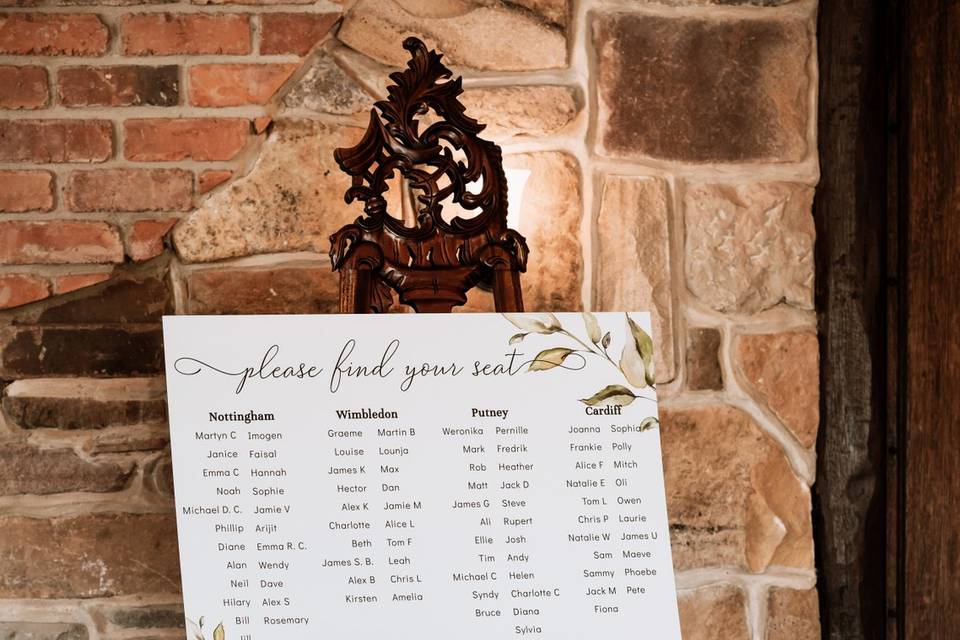 please find your seat
Nottingham
Martyn C Imogen
Janice Faisal
Emma C Hannah
Noah Sophie
Michael D. C. Jamie V
Phillip Arijit
Diane Emma R. C.
Alan Wendy
Neil Dave
Hilary Alex S
Bill Rosemary
Jill
Wimbledon
Graeme Martin B
Louise Lounja
James K Max
Hector Dan
Alex K Jamie M
Charlotte Alice L
Beth Tom F
James S. B. Leah
Alex B Chris L
Kirsten Amelia
Putney
Weronika Pernille
Mark Fredrik
Rob Heather
Matt Jack D
James G Steve
Ali Rupert
Ellie Josh
Tim Andy
Michael C Helen
Syndy Charlotte C
Bruce Diana
Sylvia
Cardiff
Joanna Sophia
Frankie Polly
Alice F Mitch
Natalie E Oli
Tom L Owen
Chris P Laurie
Natalie W James U
Sam Maeve
Sammy Phoebe
Jack M Pete
Fiona